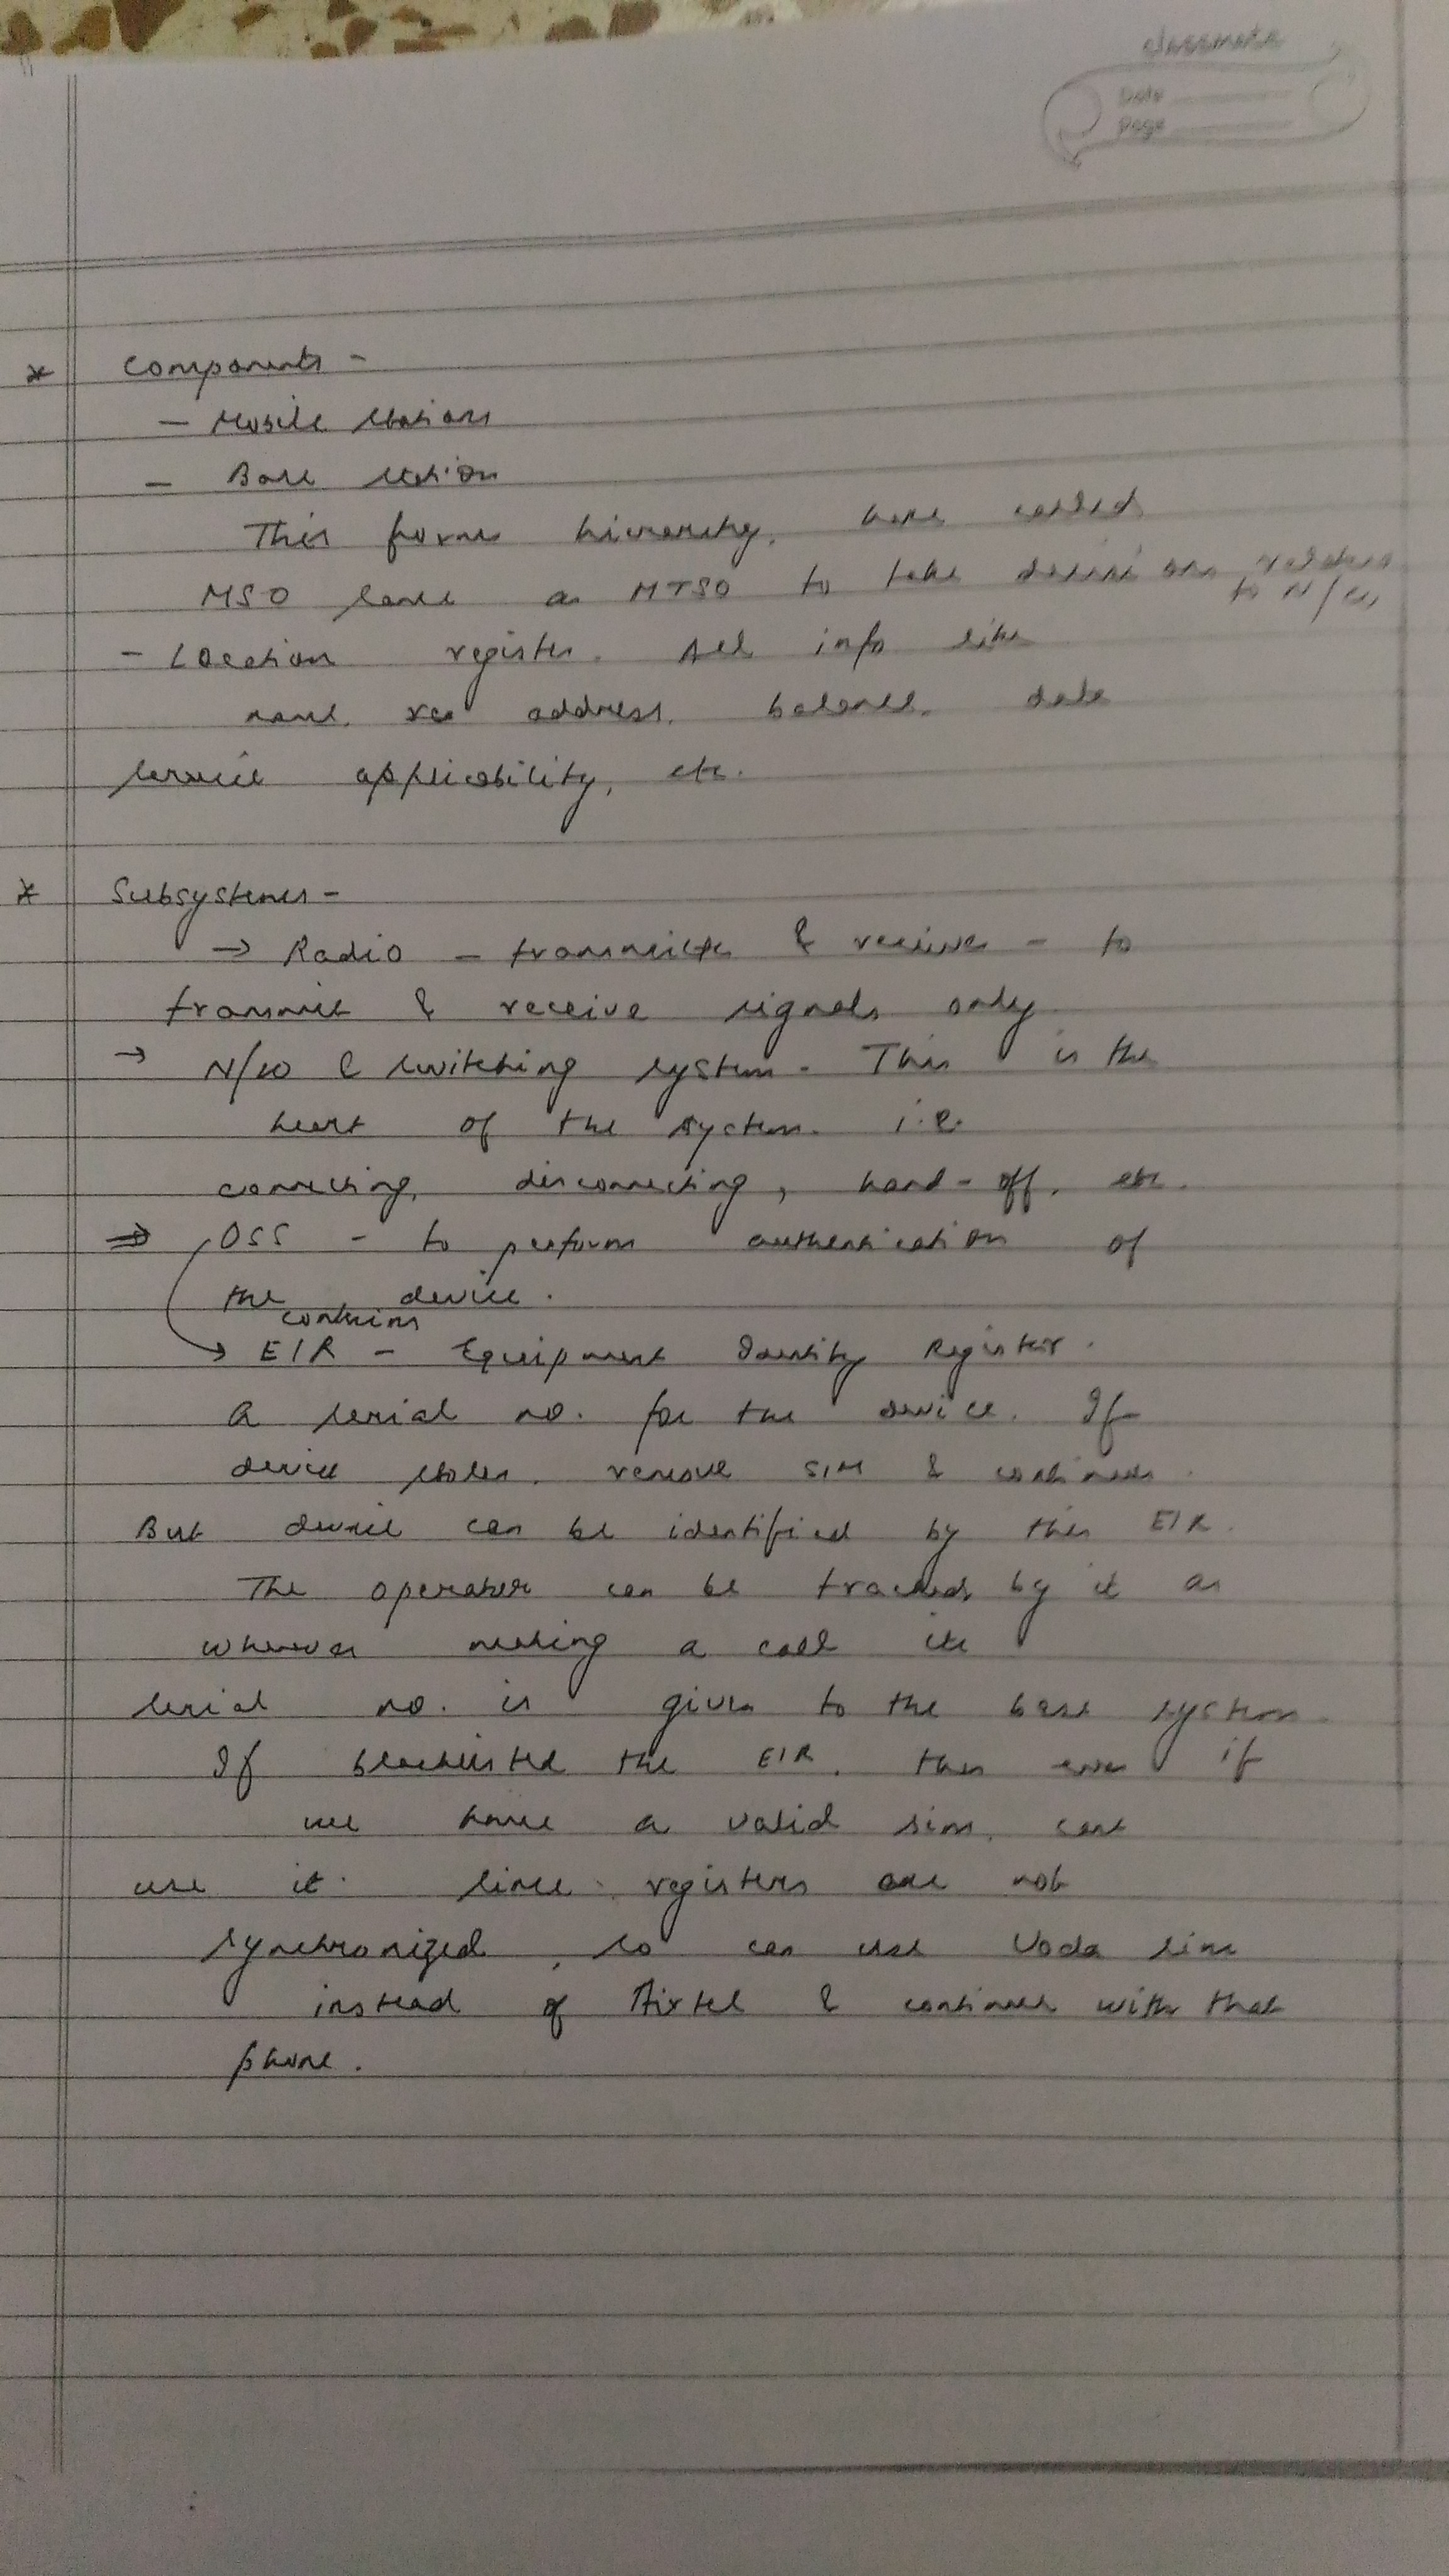 classmate
Date
Page
* Components -
- Mobile stations
- Base station
This forms hierarchy. here called
MSO same as MTSO to take decisions related
to N/w,
- Location register. All info like
name, res address, balance, date
service applicability, etc.
* Subsystems -
→ Radio - transmitter & receiver - to
transmit & receive signals only
→ N/w & switching system - This is the
heart of the system. i.e.
connecting, disconnecting, hand-off, etc.
⇒ OSS - to perform authentication of
the device.
contains
→ EIR - Equipment Identity Register.
a serial no. for the device. If
device stolen, remove SIM & continues.
But device can be identified by this EIR.
The operator can be tracked by it as
whenever making a call its
serial no. is given to the base system.
If blacklisted the EIR, then even if
we have a valid sim, cant
use it. Since registers are not
synchronized, so can use Voda sim
instead of Airtel & continue with that
phone.